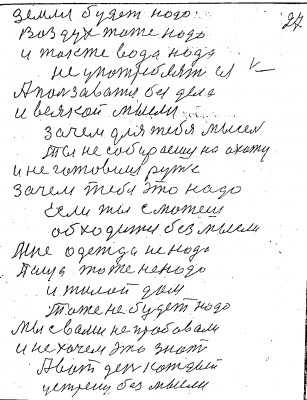 земли будет надо
27
воздух тоже надо
и также вода надо
не употреблят ся
А ползавати без дела
и всякой мысли
зачем для тебя мысел
ты не собираеш на охоту
и не готовиш руже
зачем тебя это надо
Если ты сможеш
обходитя без мысли
Мне одежда не надо
Пища тоже ненадо
и жилой дом
тоже не будет надо
мы с вами не пробовали
и не хочем это знат
А вот ден каждый
без мысли